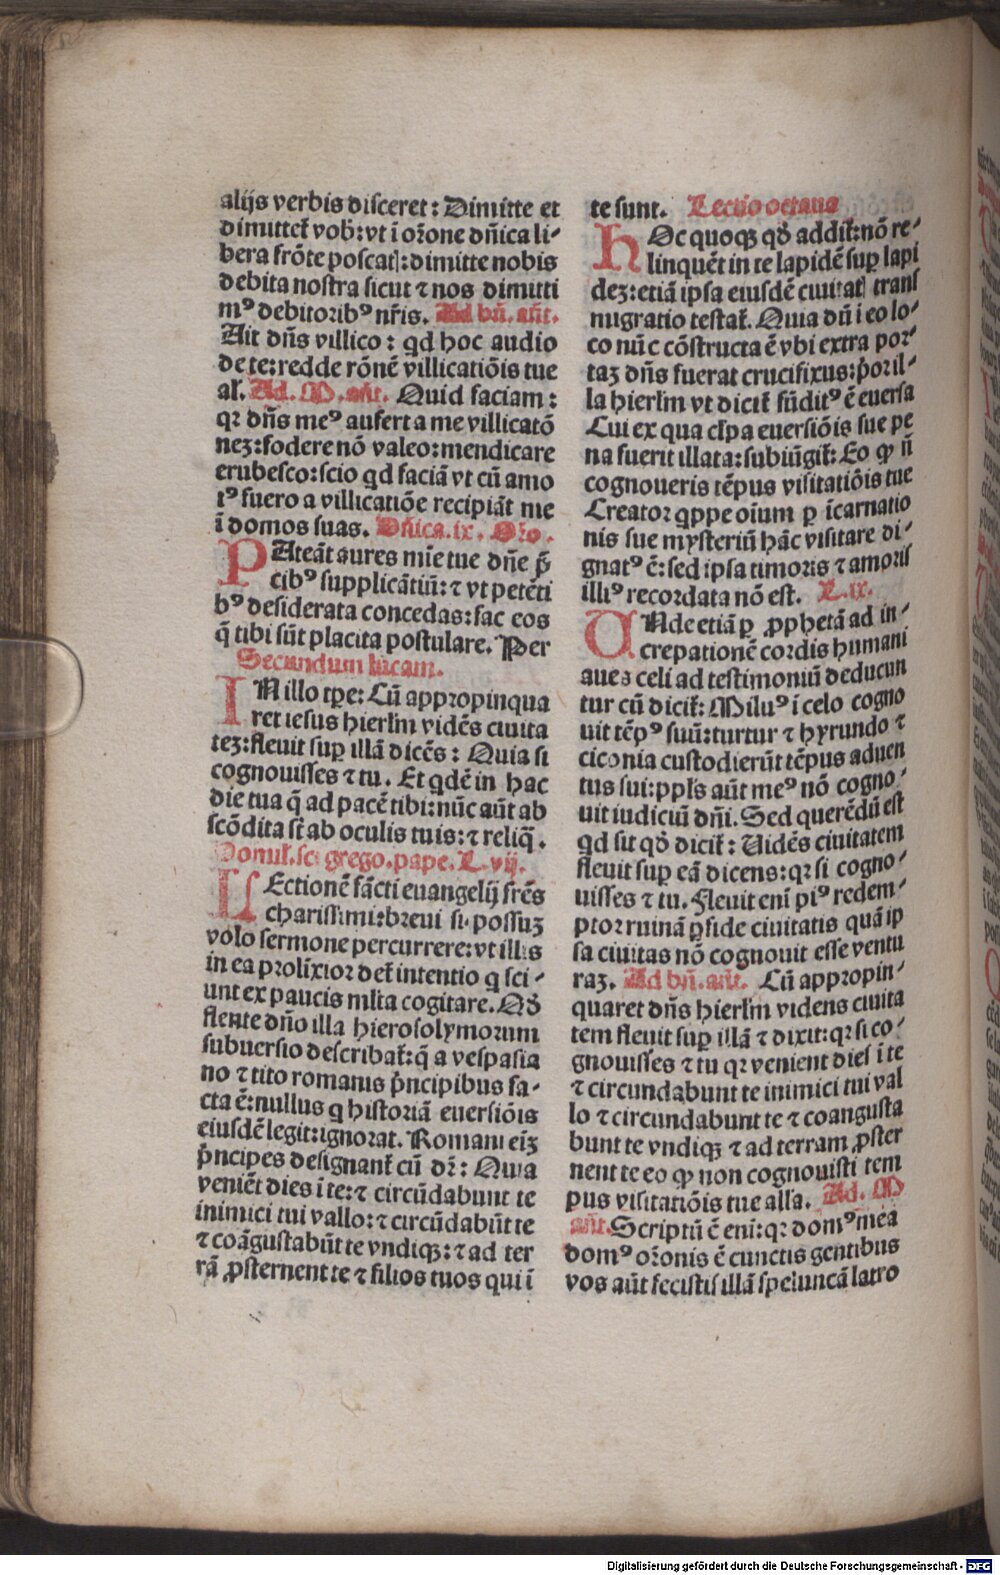 alijs verbis disceret: Dimitte et
dimittet᷒ vob᷒: vt ī or̄one dn̄ica li⸗
bera frōte poscatꝭ: dimitte nobis
debita nostra sicut ⁊ nos dimitti
mꝰ debitoribꝰ nr̄is. Ad bn̄. an̄t.
Ait dn̄s villico: qd hoc audio
de te: redde rōnē villicatiōis tue
al᷒. Ad. M. an̄t. Quid faciam:
qꝛ dn̄s meꝰ aufert a me villicatō
neꝫ: fodere nō valeo: mendicare
erubesco: scio qd faciā vt cū amo
tꝰ fuero a villicatiōe recipiāt me
ī domos suas. Dn̄ica. ix. Oꝛo.
PAteāt aures mīe tue dn̄e p̄
cibꝰ supplicātiū: ⁊ vt petēti
bꝰ desiderata concedas: fac eos
q̄ tibi sūt placita postulare. Per
Secundum lucam.
IN illo tꝑe: Cū appropinqua
ret iesus hierłm vidēs ciuita
teꝫ: fleuit suꝑ illā dicēs: Quia si
cognouisses ⁊ tu. Et qdē in hac
die tua q̄ ad pacē tibi: nūc aūt ab
scōdita st̄ ab oculis tuis: ⁊ reliq̄.
Domil᷒. sci grego. pape. L. vij.
LEctionē sācti euangelij fr̄es
charissimi: breui si possuꝫ
volo sermone percurrere: vt illis
in ea prolixior det᷒ intentio q sci⸗
unt ex paucis ml̄ta cogitare. Qd̄
flente dn̄o illa hierosolymorum
subuersio describat᷒: q̄ a vespasia
no ⁊ tito romanis p̄ncipibus fa⸗
cta ē: nullus q historiā euersiōis
eiusdē legit: ignorat. Romani eīꝫ
p̄ncipes designant᷒ cū dꝛ̄: Quia
veniēt dies ī te: ⁊ circūdabunt te
inimici tui vallo: ⁊ circūdabūt te
⁊ coāgustabūt te vndiqꝫ: ⁊ ad ter
rā ꝓsternent te ⁊ filios tuos qui ī
te sunt. Lectio octaua
HOc quoqꝫ qd̄ addit᷒: nō re⸗
linquēt in te lapidē suꝑ lapi
deꝫ: etiā ipsa eiusdē ciuitatꝭ trans
migratio testat᷒. Quia dū ī eo lo⸗
co nūc cōstructa ē vbi extra por⸗
taꝫ dn̄s fuerat crucifixus: p̄or il⸗
la hierłm vt dicit᷒ fūditꝰ ē euersa
Cui ex qua cl̄pa euersiōis sue pe
na fuerit illata: subiūgit᷒: Eo ꝙ nō
cognoueris tēpus visitatiōis tue
Creator qppe oīum ꝑ īcarnatio
nis sue mysteriū hāc visitare di⸗
gnatꝰ ē: sed ipsa timoris ⁊ amoris
illiꝰ recordata nō est. L. ix.
UNde etiā ꝑ ꝓphetā ad in⸗
crepationē cordis humani
aues celi ad testimoniū deducun
tur cū dicit᷒: Miluꝰ ī celo cogno
uit tēpꝰ suū: turtur ⁊ hyrundo ⁊
ciconia custodierūt tēpus aduen
tus sui: ppl̄s aūt meꝰ nō cogno⸗
uit iudiciū dn̄i. Sed querēdū est
qd sit qd̄ dicit᷒: Uidēs ciuitatem
fleuit suꝑ eā dicens: qꝛ si cogno⸗
uisses ⁊ tu. Fleuit enī piꝰ redem⸗
ptor ruinā ꝑfide ciuitatis quā ip
sa ciuitas nō cognouit esse ventu
raꝫ. Ad bn̄. an̄t. Cū appropin⸗
quaret dn̄s hierłm videns ciuita
tem fleuit suꝑ illā ⁊ dixit: qꝛ si co⸗
gnouisses ⁊ tu qꝛ venient dies ī te
⁊ circundabunt te inimici tui val
lo ⁊ circundabunt te ⁊ coangusta
bunt te vndiqꝫ ⁊ ad terram ꝓster
nent te eo ꝙ non cognouisti tem
pus visitatiōis tue alla. Ad. M
an̄t. Scriptū ē eni: qꝛ domꝰ mea
domꝰ or̄onis ē cunctis gentibus
vos aūt fecistis illā speluncā latro
Digitalisierung gefördert durch die Deutsche Forschungsgemeinschaft - DFG